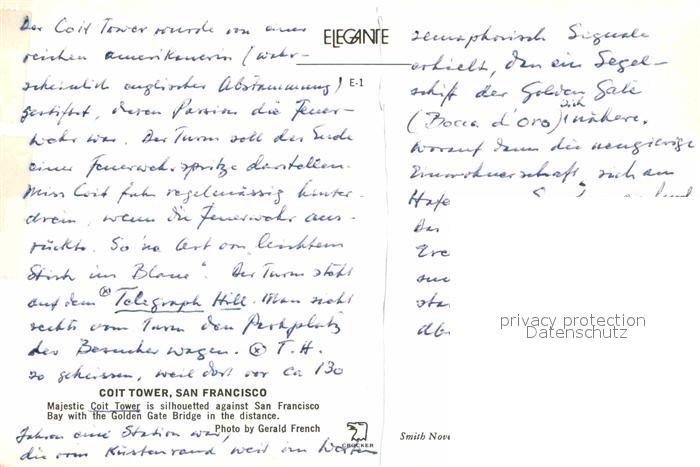 Der Coit Tower wurde von einer
reichen Amerikanerin (wahr-
scheinlich englischer Abstammung)
gestiftet, deren Passion die Feuer-
wehr war. Der Turm soll das Ende
einer Feuerwehrspritze darstellen.
Miss Coit fuhr regelmässig hinter-
drein, wenn die Feuerwehr aus-
rückte. So 'ne Art von "leichtem
Stich ins Blaue". Der Turm steht
auf dem ⊗ Telegraph Hill. Man sieht
rechts vom Turm den Parkplatz
der Besucherwagen. ⊗ T.H.
so geheissen, weil dort vor ca 130
COIT TOWER, SAN FRANCISCO
Majestic Coit Tower is silhouetted against San Francisco
Bay with the Golden Gate Bridge in the distance.
Photo by Gerald French
Jahren eine Station war,
die vom Küstenrand weit im Westen
ELEGANTE
E-1
CROCKER
semaphorisch Signale
erhielt, dass ein Segel-
schiff der Golden Gate
(Bocca d'oro) sich nähere.
Worauf dann die neugierige
Einwohnerschaft, sich am
Hafe
Das
sta
privacy protection
Datenschutz
Smith Nov